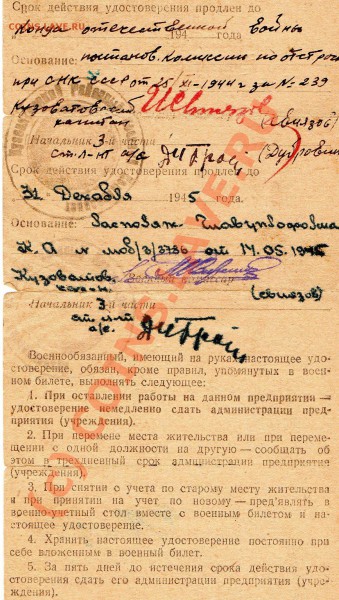 COINS.LAVE.RU
Срок действия удостоверения продлен до
конца отечественной войны
194 года
Основание: постанов. Комиссии по отсроч
при СНК СССР от 25/XI-1944 г за № 239
Кузоватовский
капитан (Евизов)
Начальник 3-й части
ст. л-т а/с
Срок действия удостоверения продлен до
31 Декабря 1945 года
Основание:
К.А № моб/3/3736 от 17.05.1945
Кузоватов. Военный комиссар
(Евизов)
Начальник 3 части
а/с.
Военнообязанный, имеющий на руках настоящее удо-
стоверение, обязан, кроме правил, упомянутых в воен-
ном билете, выполнять следующее:
1. При оставлении работы на данном предприятии—
удостоверение немедленно сдать администрации пред-
приятия (учреждения).
2. При перемене места жительства или при переме-
щении с одной должности на другую—сообщать об
этом в трехдневный срок администрации предприятия
(учреждения).
3. При снятии с учета по старому месту жительства
и при принятии на учет по новому—пред'являть в
военно-учетный стол вместе с военным билетом и на-
стоящее удостоверение.
4. Хранить настоящее удостоверение постоянно при
себе вложенным в военный билет.
5. За пять дней до истечения срока действия удо-
стоверения сдать его администрации предприятия (учре-
ждения).